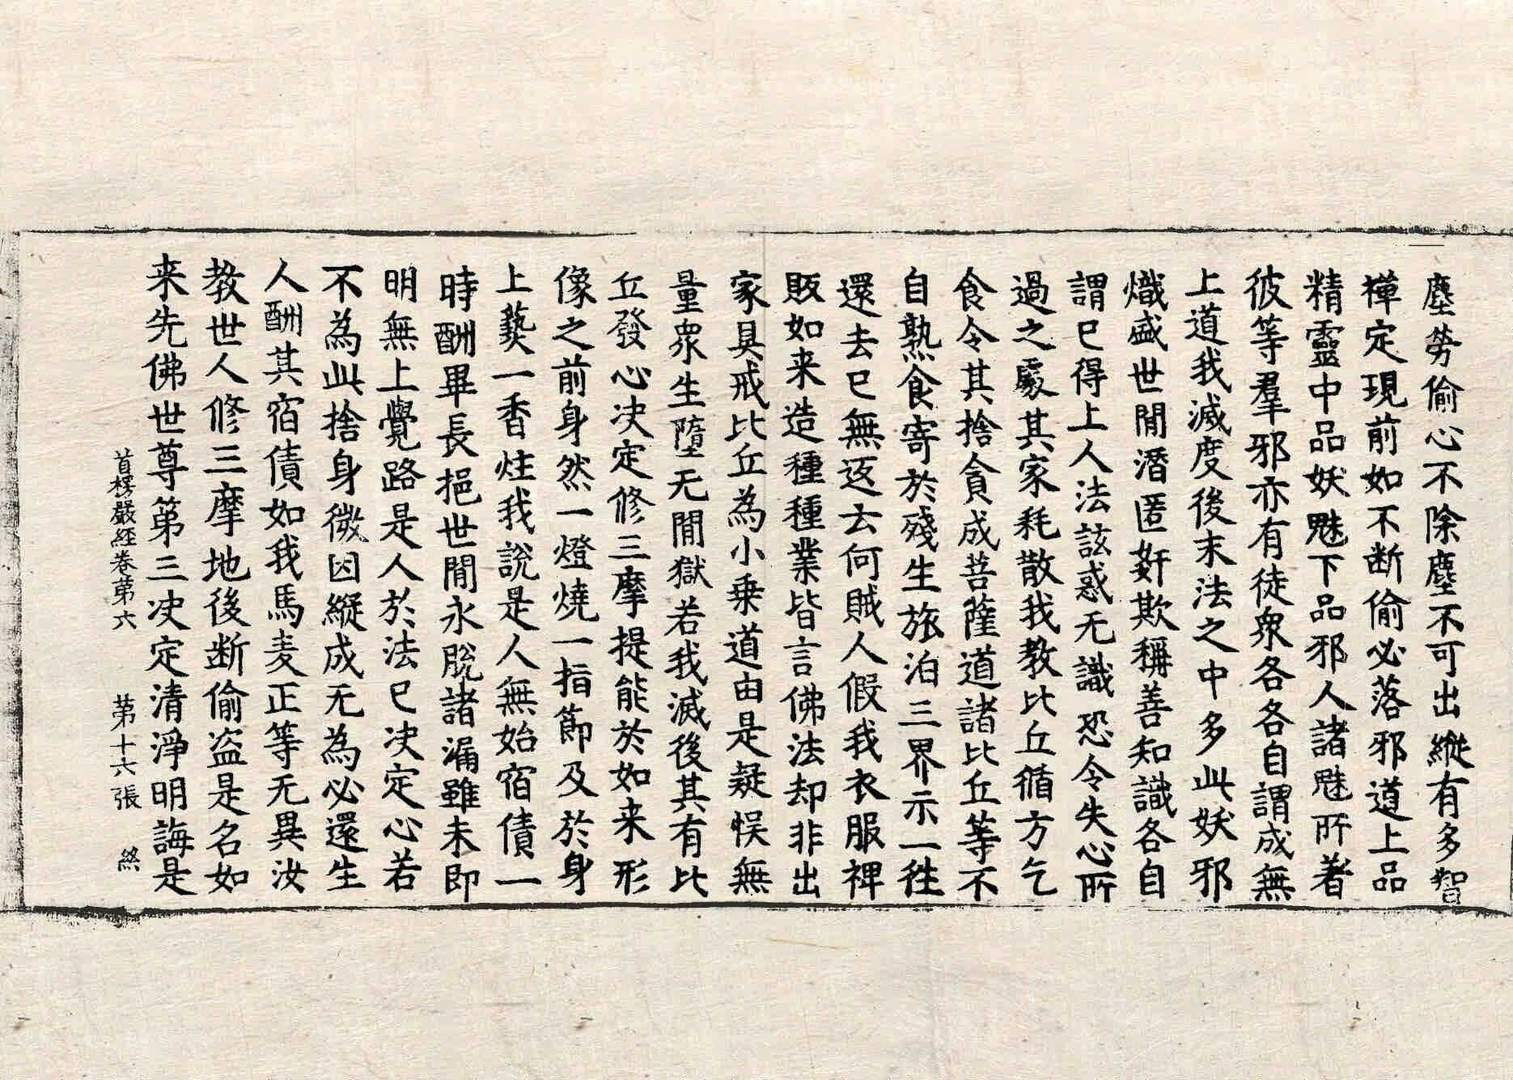 塵勞偷心不除塵不可出縱有多智
禪定現前如不断偷必落邪道上品
精靈中品妖魅下品邪人諸魅所著
彼等羣邪亦有徒衆各各自謂成無
上道我滅度後末法之中多此妖邪
熾盛世間潛匿奸欺稱善知識各自
謂已得上人法詃惑无識恐令失心所
過之處其家耗散我教比丘循方乞
食令其捨貪成菩薩道諸比丘等不
自熟食寄於殘生旅泊三界示一徃
還去已無返云何賊人假我衣服裨
販如来造種種業皆言佛法却非出
家具戒比丘為小乗道由是疑悮無
量衆生墮无間獄若我滅後其有比
丘發心决定修三摩提能於如来形
像之前身然一燈燒一指節及於身
上爇一香炷我說是人無始宿債一
時酬畢長挹世間永脫諸漏雖未即
明無上覺路是人於法已决定心若
不為此捨身微因縱成无為必還生
人酬其宿債如我馬麦正等无異汝
教世人修三摩地後断偷盗是名如
来先佛世尊第三决定清淨明誨是
首楞嚴経卷第六 第十六張 終